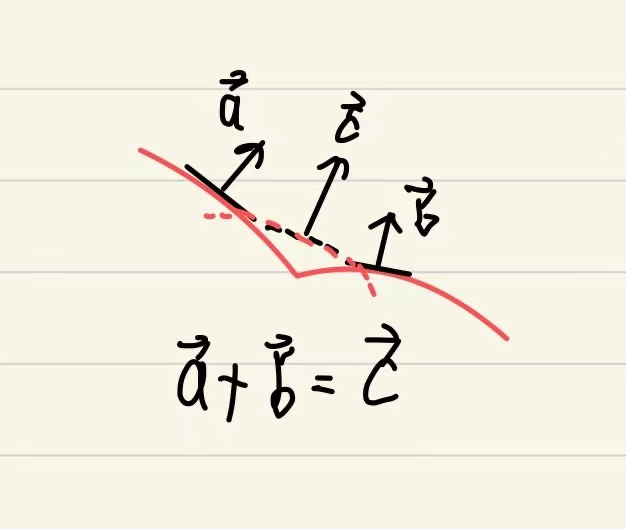 a⃗
c⃗
b⃗
a⃗ + b⃗ = c⃗